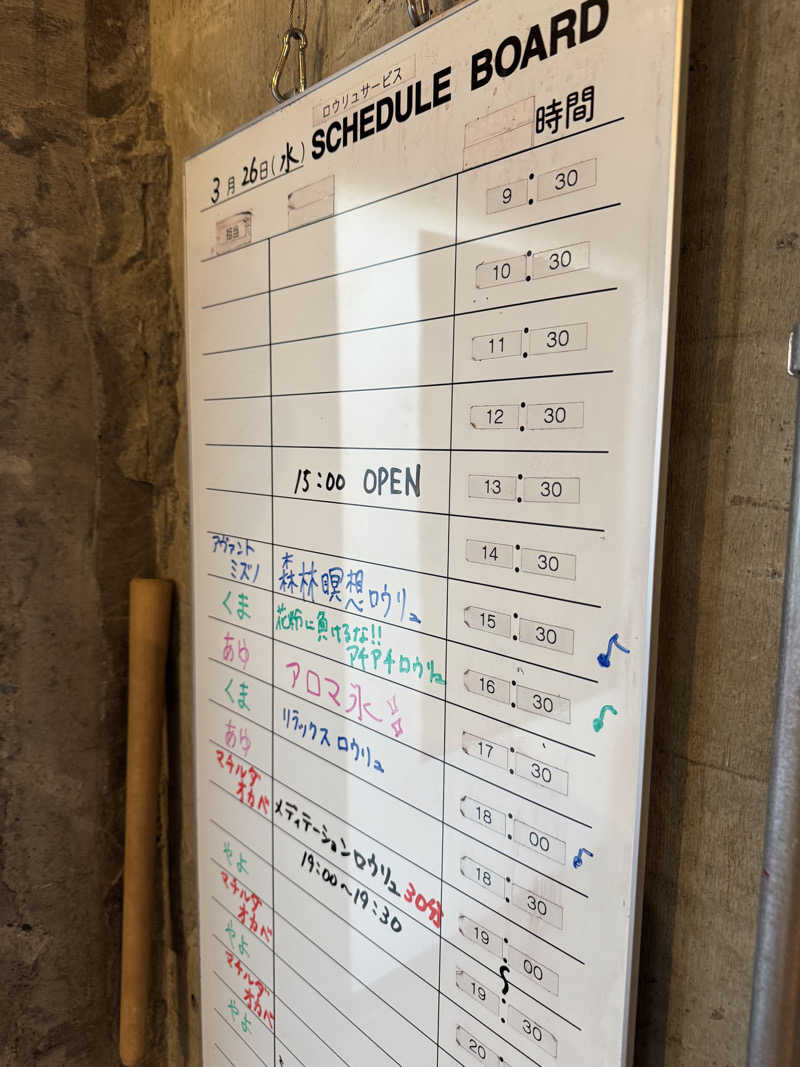 ロウリュサービス
SCHEDULE BOARD
3月26日(水)
時間
担当
9:30
10:30
11:30
12:30
15:00 OPEN
13:30
14:30
アヴァント
ミズノ
森林瞑想ロウリュ
15:30
くま
花粉に負けるな!!
アチアチロウリュ
16:30
あゆ
アロマ氷
17:30
くま
リラックスロウリュ
18:00
あゆ
18:30
マチルダ
オカベ
メディテーションロウリュ30分
19:00~19:30
19:00
~
19:30
やよ
20
マチルダ
オカベ
やよ
マチルダ
オカベ
やよ